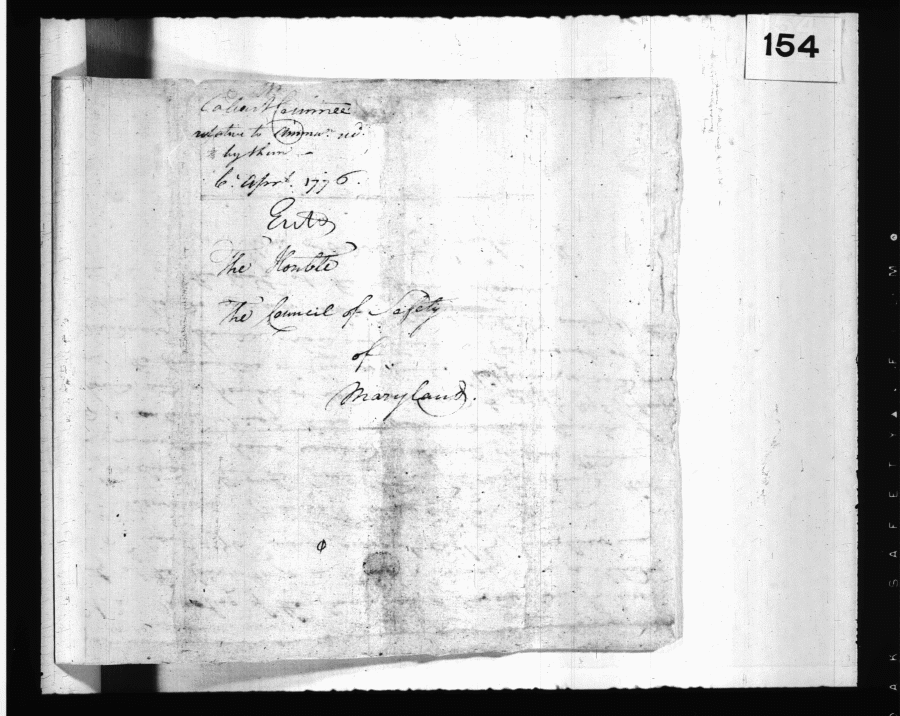 154
Calvert Committee
relative to Ammn. recd.
by them
6. Aprl. 1776.
Entd
The Honble
The Council of Safety
of
Maryland.
SAFETY ▲ FILM